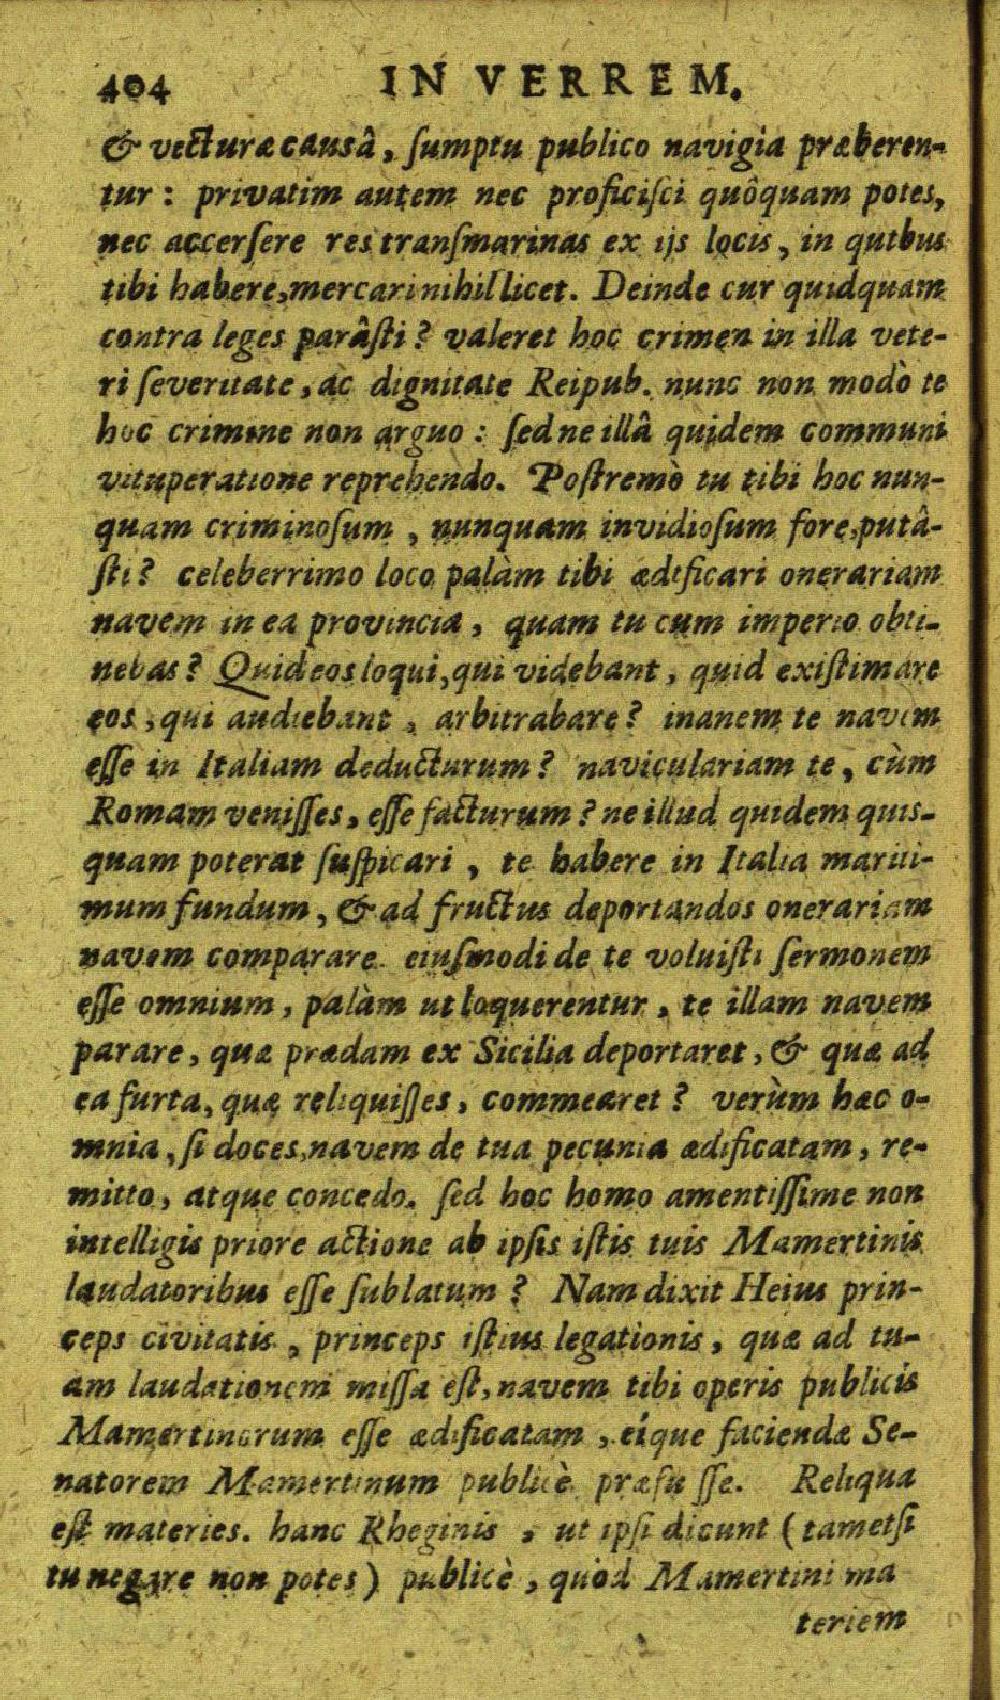 404 IN VERREM.
& vecturæ causâ, ſumptu publico navigia præberen-
tur: privatim autem nec proficiſci quôquam potes,
nec accerſere res tranſmarinas ex ijs locis, in quibus
tibi habere, mercari nihil licet. Deinde cur quidquam
contra leges parâſti? valeret hoc crimen in illa vete-
ri ſeveritate, ac dignitate Reipub. nunc non modò te
hoc crimine non arguo: ſed ne illâ quidem communi
vituperatione reprehendo. Poſtremò tu tibi hoc nun-
quam criminoſum, nunquam invidioſum fore, putâ-
ſti? celeberrimo loco palàm tibi ædificari onerariam
navem in ea provincia, quam tu cum imperio obti-
nebas? Quid eos loqui, qui videbant, quid exiſtimare
eos, qui audiebant, arbitrabare? inanem te navem
eſſe in Italiam deducturum? naviculariam te, cùm
Romam veniſſes, eſſe facturum? ne illud quidem quis-
quam poterat ſuſpicari, te habere in Italia mariti-
mum fundum, & ad fructus deportandos onerariam
navem comparare. eiuſmodi de te voluiſti ſermonem
eſſe omnium, palàm ut loquerentur, te illam navem
parare, quæ prædam ex Sicilia deportaret, & quæ ad
ea furta, quæ reliquiſſes, commearet? verùm hæc o-
mnia, ſi doces, navem de tua pecunia ædificatam, re-
mitto, atque concedo. ſed hoc homo amentiſſime non
intelligis priore actione ab ipſis iſtis tuis Mamertinis
laudatoribus eſſe ſublatum? Nam dixit Heius prin-
ceps civitatis, princeps iſtius legationis, quæ ad tu-
am laudationem miſſa eſt, navem tibi operis publicis
Mamertinorum eſſe ædificatam, eíque faciendæ Se-
natorem Mamertinum publicè præfuiſſe. Reliqua
eſt materies. hanc Rheginis, ut ipſi dicunt (tametſi
tu negare non potes) publicè, quòd Mamertini ma
teriem